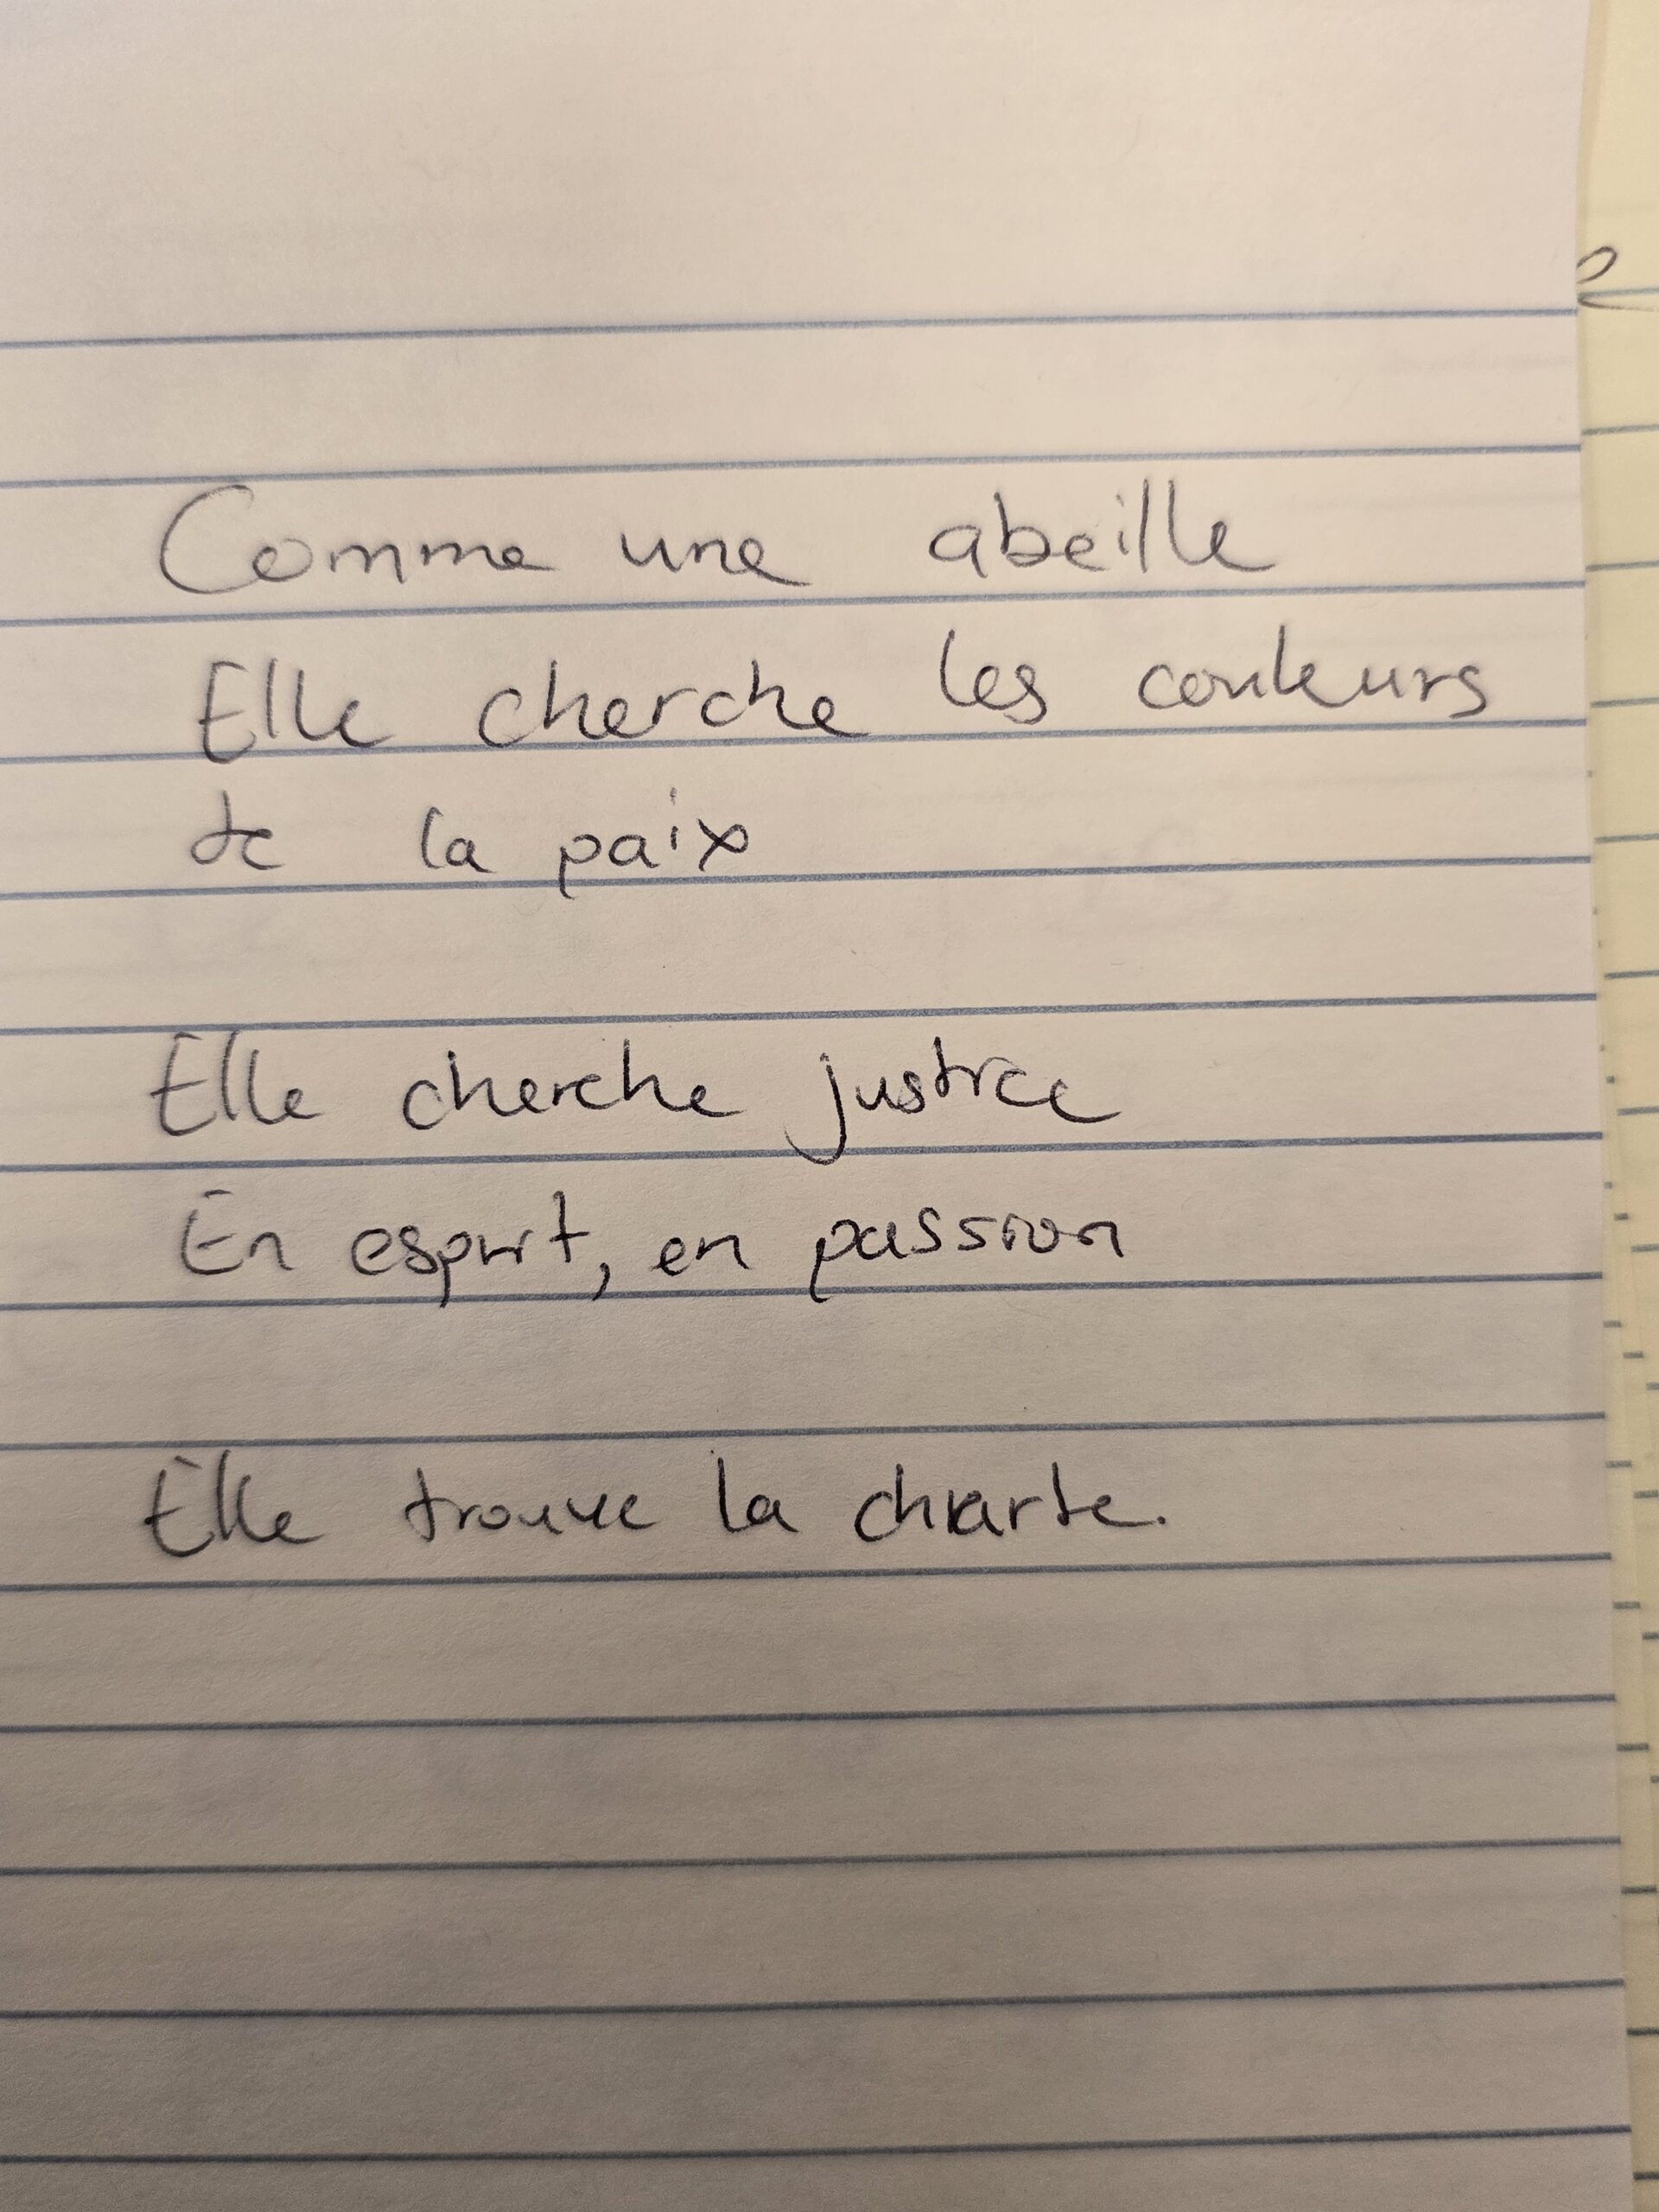 Comme une abeille
Elle cherche les couleurs
de la paix
Elle cherche justice
En esprit, en passion
Elle trouve la